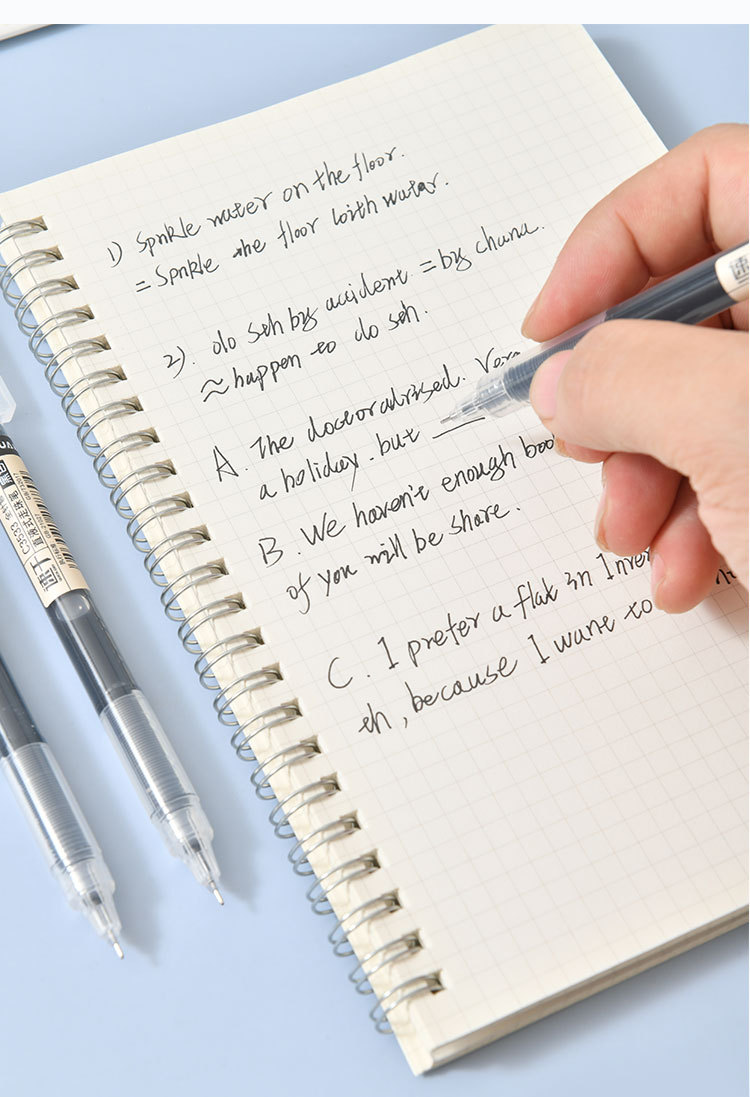 1) Spnkle water on the floor.
= Spnkle the floor with water.
2). do sth by accident = by chana.
≈ happen to do sth.
A. The doctor advised. Vera
a holiday. but ___
B. We haven't enough boo
of you will be share.
C. I prefer a flat in Inver
eh, because I want to
C3533